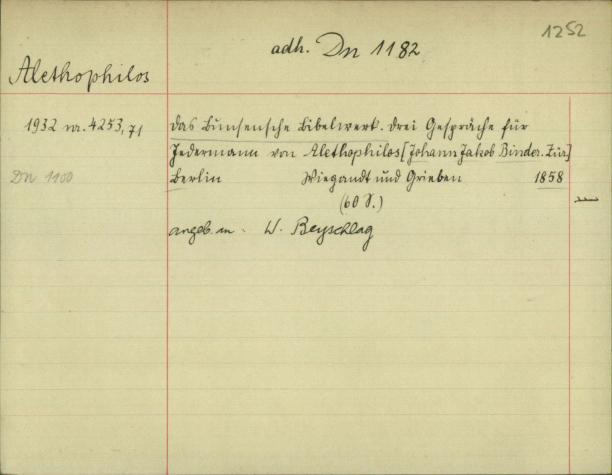 1252
adh. Dn 1182
Alethophilos
1932 nr. 4253,71
Das Bunsensche Bibelwerk. Drei Gespräche für
Jedermann von Alethophilos [Johann Jakob Binder. Zür]
Dn 1100
Berlin Wiegandt und Grieben 1858
(60 S.)
angeb. an: W. Beyschlag